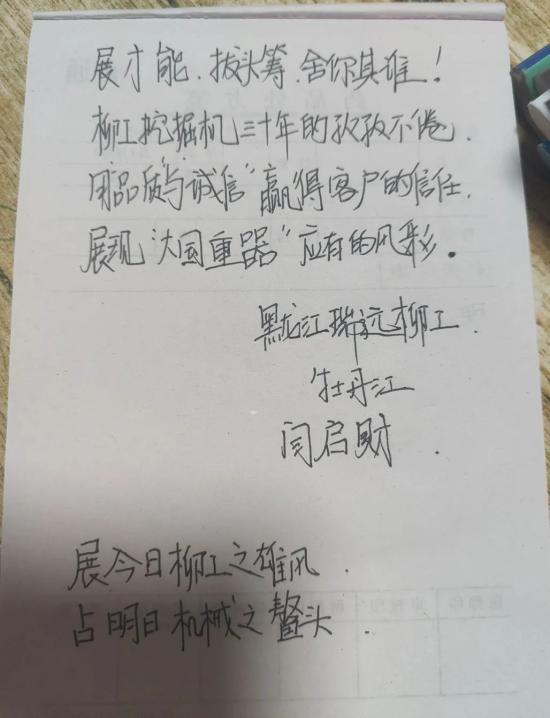 展才能、拔头筹、舍你其谁!
柳工挖掘机三十年的孜孜不倦.
用品质与诚信"赢得客户的信任.
展现"大国重器"应有的风彩.
黑龙江瑞远柳工.
牡丹江
闫启财.
展今日柳工之雄风.
占明日机械之鳌头.